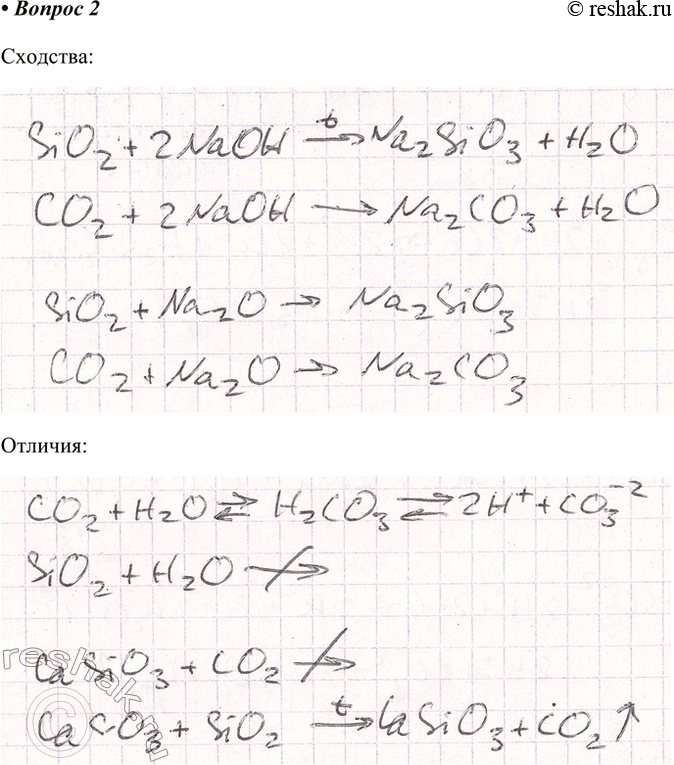 • Вопрос 2 © reshak.ru
Сходства:
SiO₂ + 2NaOH →ᵗ Na₂SiO₃ + H₂O
CO₂ + 2NaOH → Na₂CO₃ + H₂O
SiO₂ + Na₂O → Na₂SiO₃
CO₂ + Na₂O → Na₂CO₃
Отличия:
CO₂ + H₂O ⇄ H₂CO₃ ⇄ 2H⁺ + CO₃⁻²
SiO₂ + H₂O ↛
CaSiO₃ + CO₂ ↛
CaCO₃ + SiO₂ →ᵗ CaSiO₃ + CO₂↑
reshak.ru
©